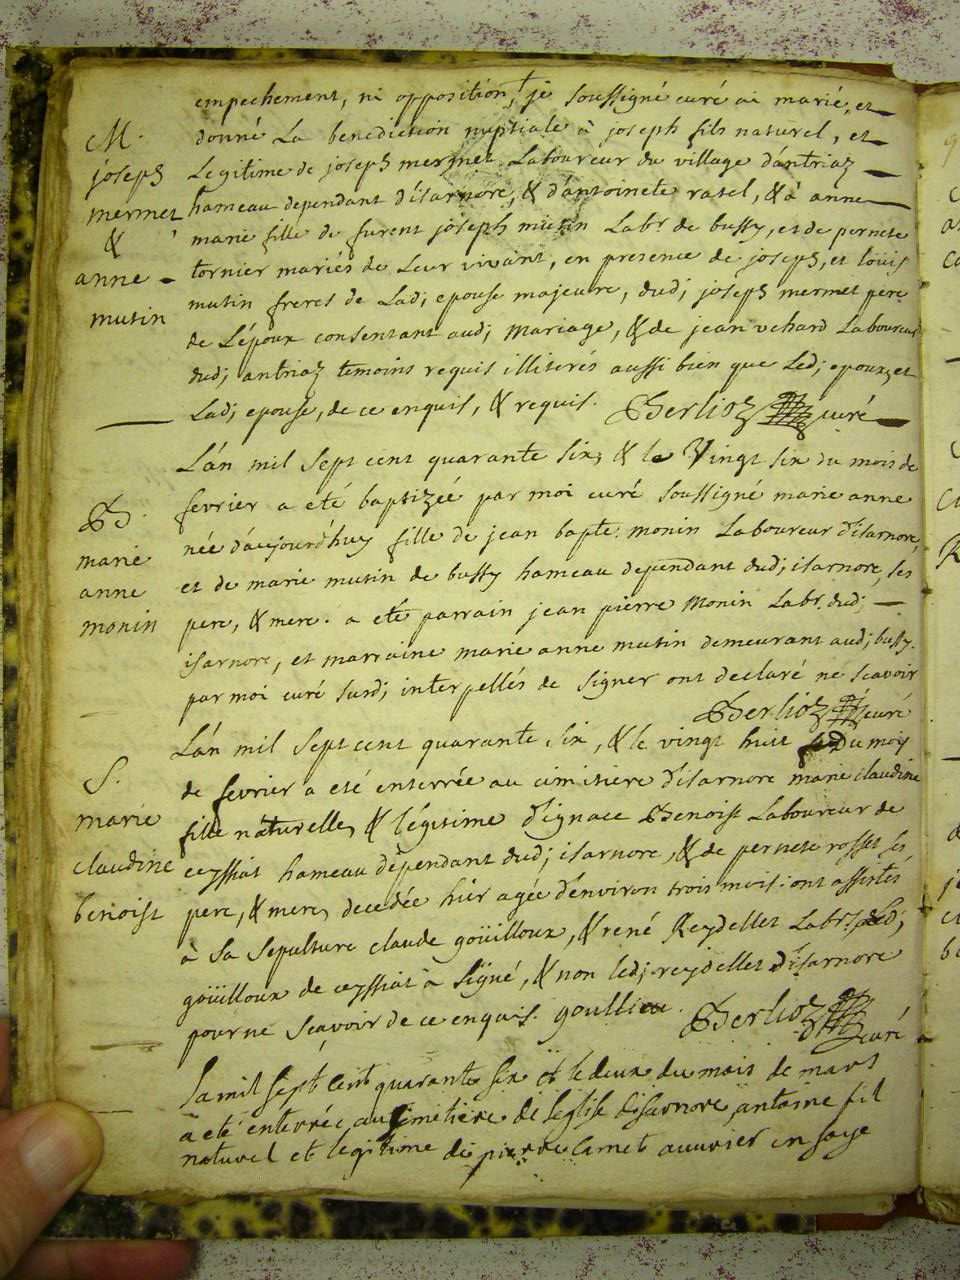 empechement, ni opposition, je soussigné curé ai marié, et
donné La benediction nuptiale à joseph fils naturel, et
Legitime de joseph mermet Laboureur du village d'antriaz
hameau dependant d'isarnore, & d'antoinete ratel, & à anne
marie fille de furent joseph mutin Labr. de bussy, et de pernete
tornier mariés de Leur vivant, en presence de joseph, et loüis
mutin freres de Lad; epouse majeure, dud; joseph mermet pere
de L'époux consentant aud; mariage, & de jean vchard Laboureur
dud; antriaz temoins requis illiterés aussi bien que Led; epoux, et
Lad; epouse, de ce enquis, & requis. Berlioz curé
M.
joseph
mermet
&
anne
mutin
L'an mil sept cent quarante six, & le Vingt six du mois de
fevrier a eté baptizéé par moi curé soussigné marie anne
née d'aujourd'huy fille de jean bapte: monin Laboureur d'isarnore,
et de marie mutin de bussy hameau dependant dud; isarnore, ses
pere, & mere. a eté parrain jean pierre Monin Labr. dud;
isarnore, et marraine marie anne mutin demeurant aud; bussy.
par moi curé susd; interpellés de signer ont declaré ne scavoir
Berlioz curé
B.
marie
anne
monin
L'an mil sept cent quarante six, & le vingt huit du moy
de fevrier a eté enterrée au cimitiere d'isarnore marie claudine
fille naturelle, & légitime d'ignace Benoist Laboureur de
ceyssiat hameau dependant dud; isarnore, & de pernete rosset ses
pere, & mere, decedée hier agée d'environ trois mois: ont assistés
à sa sepulture claude goüilloux, & rené Reydellet Labrs, Led;
goüilloux de ceyssiat à signé, & non led; reydellet d'isarnore
pour ne scavoir de ce enquis. goullieu. Berlioz
curé
S.
marie
claudine
benoist
Lamil sept cent quarante six et le deux du mois de mars
a eté enterrée au cimetiere de leglise disarnore antoine fil
naturel et legitime de pierre Camet auvrier en soye